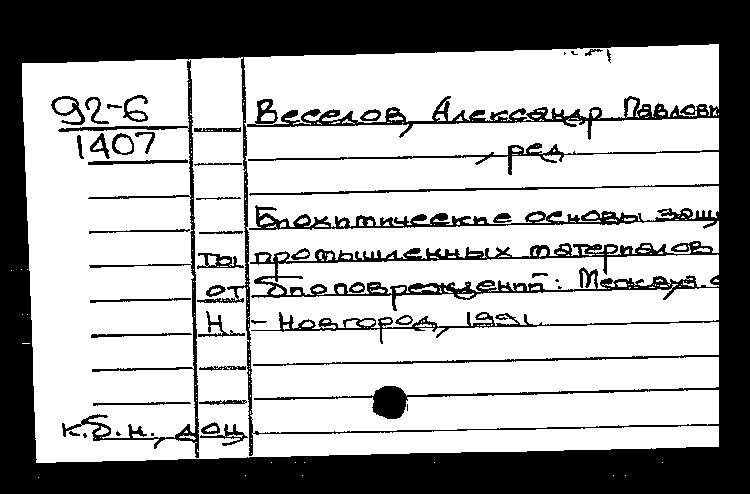 92-6 Веселов, Александр Павлови
1407
, ред.
Биохимические основы защи
ты промышленных материалов
от биоповреждений: Межвуз. с
Н. - Новгород, 1991.
к.б.н., доц.